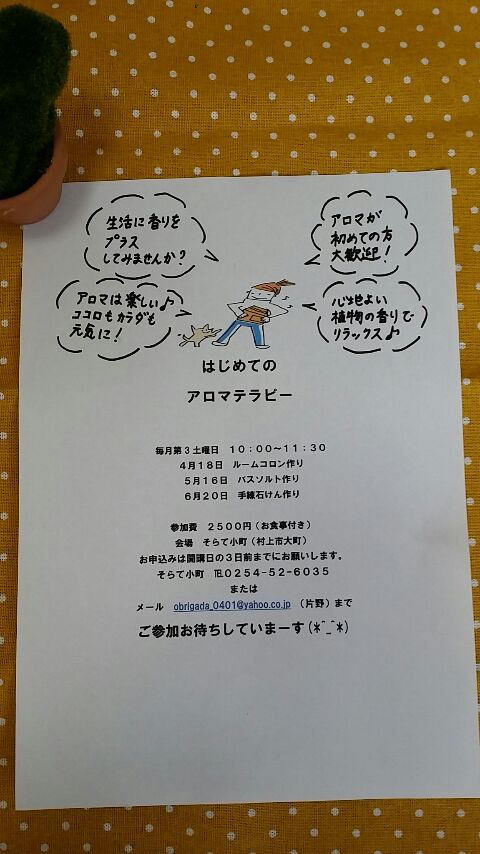 生活に香りを
プラス
してみませんか?
アロマが
初めての方
大歓迎!
アロマは楽しい♪
ココロもカラダも
元気に!
心地よい
植物の香りで
リラックス♪
はじめての
アロマテラピー
毎月第3土曜日 10:00~11:30
4月18日 ルームコロン作り
5月16日 バスソルト作り
6月20日 手練石けん作り
参加費 2500円(お食事付き)
会場 そらて小町(村上市大町)
お申込みは開講日の3日前までにお願いします。
そらて小町 ℡0254-52-6035
または
メール obrigada_0401@yahoo.co.jp (片野)まで
ご参加お待ちしていまーす(*^_^*)